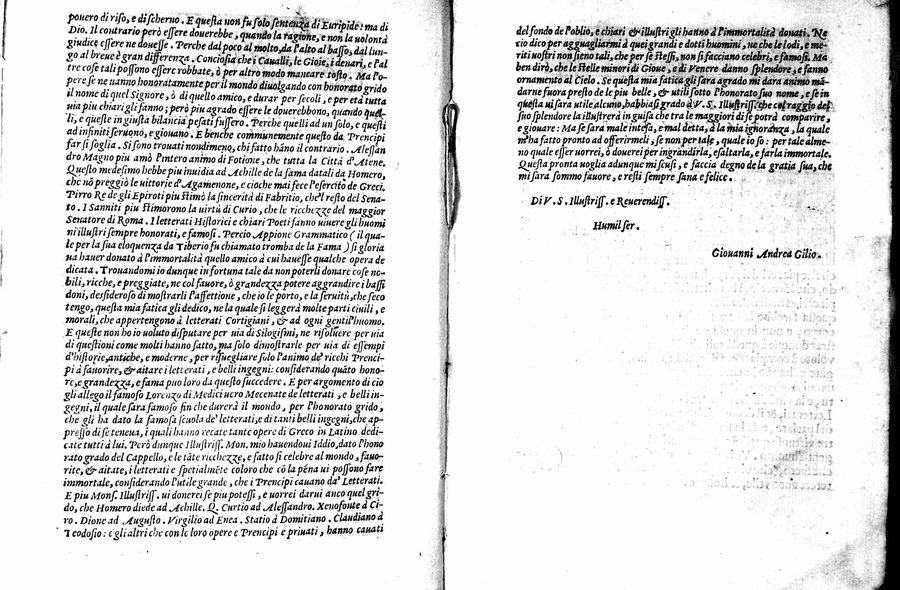 pouero di riso, e di scherno. E questa non fu solo sentenza di Euripide: ma di
Dio. Il contrario però essere douerebbe, quando la ragione, e non la uolontà
giudice essere ne douesse. Perche dal poco al molto, da l'alto al basso, dal lun-
go al breue è gran differenza. Conciosia che i Caualli, le Gioie, i denari, e l'al
tre cose tali possono essere robbate, ò per altro modo mancare tosto. Ma l'o-
pere se ne uanno honoratamente per il mondo diuolgando con honorato grido
il nome di quel Signore, ò di quello amico, e durar per secoli, e per età tutta
uia piu chiari gli fanno; però piu agrado essere le douerebbono, quando quel-
li, e queste in giusta bilancia pesati fussero. Perche quelli ad un solo, e questi
ad infiniti seruono, e giouano. E benche communemente questo da Prencipi
far si soglia. Si sono trouati nondimeno, chi fatto hāno il contrario. Alessan
dro Magno piu amò l'intero animo di Fotione, che tutta la Città d'Atene.
Questo medesimo hebbe piu inuidia ad Achille de la fama datali da Homero,
che nō preggiò le uittorie d'Agamenone, e cioche mai fece l'esercito de Greci.
Pirro Re de gli Epiroti piu stimò la sincerità di Fabritio, che'l resto del Sena-
to. I Sanniti piu stimorono la uirtù di Curio, che le ricchezze del maggior
Senatore di Roma. I letterati Historici e chiari Poeti fanno uiuere gli huomi
ni illustri sempre honorati, e famosi. Percio Appione Grammatico (il qua-
le per la sua eloquenza da Tiberio fu chiamato tromba de la Fama) si gloria
ua hauer donato à l'immortalità quello amico à cui hauesse qualche opera de
dicata. Trouandomi io dunque in fortuna tale da non poterli donare cose no-
bili, ricche, e preggiate, ne col fauore, ò grandezza potere aggrandire i bassi
doni, desideroso di mostrarli l'affettione, che io le porto, e la seruitù, che seco
tengo, questa mia fatica gli dedico, ne la quale si leggerà molte parti ciuili, e
morali, che appertengono à letterati Cortigiani, & ad ogni gentil'huomo.
E queste non ho io uoluto disputare per uia di Silogismi, ne risoluere per uia
di questioni come molti hanno fatto, ma solo dimostrarle per uia di essempi
d'historie, antiche, e moderne, per risuegliare solo l'animo de' ricchi Prenci-
pi à fauorire, & aitare i letterati, e belli ingegni: considerando quāto hono-
re, e grandezza, e fama puo loro da questo succedere. E per argomento di cio
gli allego il famoso Lorenzo de Medici uero Mecenate de letterati, e belli in-
gegni, il quale sarà famoso fin che durerà il mondo, per l'honorato grido,
che gli ha dato la famosa scuola de' letterati, e di tanti belli ingegni, che ap-
presso di se teneua, i quali hanno recate tante opere di Greco in Latino dedi-
cate tutti à lui. Però dunque Illustriss. Mon. mio hauendoui Iddio, dato l'hono
rato grado del Cappello, e le tāte ricchezze, e fatto si celebre al mondo, fauo-
rite, & aitate, i letterati e spetialmēte coloro che cō la pēna ui possono fare
immortale, considerando l'utile grande, che i Prencipi cauano da' Letterati.
E piu Mons. Illustriss. ui donerei se piu potessi, e uorrei darui anco quel gri-
do, che Homero diede ad Achille. Q. Curtio ad Alessandro. Xenofonte à Ci-
ro. Dione ad Augusto. Virgilio ad Enea. Statio à Domitiano. Claudiano à
Teodosio: e gli altri che con le loro opere e Prencipi e priuati, hanno cauati
del fondo de l'oblio, e chiari & illustri gli hanno à l'immortalità donati. Ne
cio dico per agguagliarmi à quei grandi e dotti huomini, ne che le lodi, e me-
riti uostri non sieno tali, che per se stessi, non si facciano celebri, e famosi. Ma
ben dirò, che le stelle minori di Gioue, e di Venere danno splendore, e fanno
ornamento al Cielo. Se questa mia fatica gli sarà agrado mi darà animo mā-
darne fuora presto de le piu belle, & utili sotto l'honorato suo nome, e se in
questa ui sarà utile alcuno, habbiasi grado à V. S. Illustriss. che col raggio del
suo splendore la illustrerà in guisa che tra le maggiori di se potrà comparire,
e giouare: Ma se sarà male intesa, e mal detta, à la mia ignoranza, la quale
m'ha fatto pronto ad offerirmeli, se non per tale, quale io so: per tale alme-
no quale esser uorrei, ò douerei per ingrandirla, esaltarla, e farla immortale.
Questa pronta uoglia adunque mi scusi, e faccia degno de la gratia sua, che
mi sarà sommo fauore, e resti sempre sana e felice.
Di V. S. Illustriss. e Reuerendiss.
Humil ser.
Giouanni Andrea Gilio.